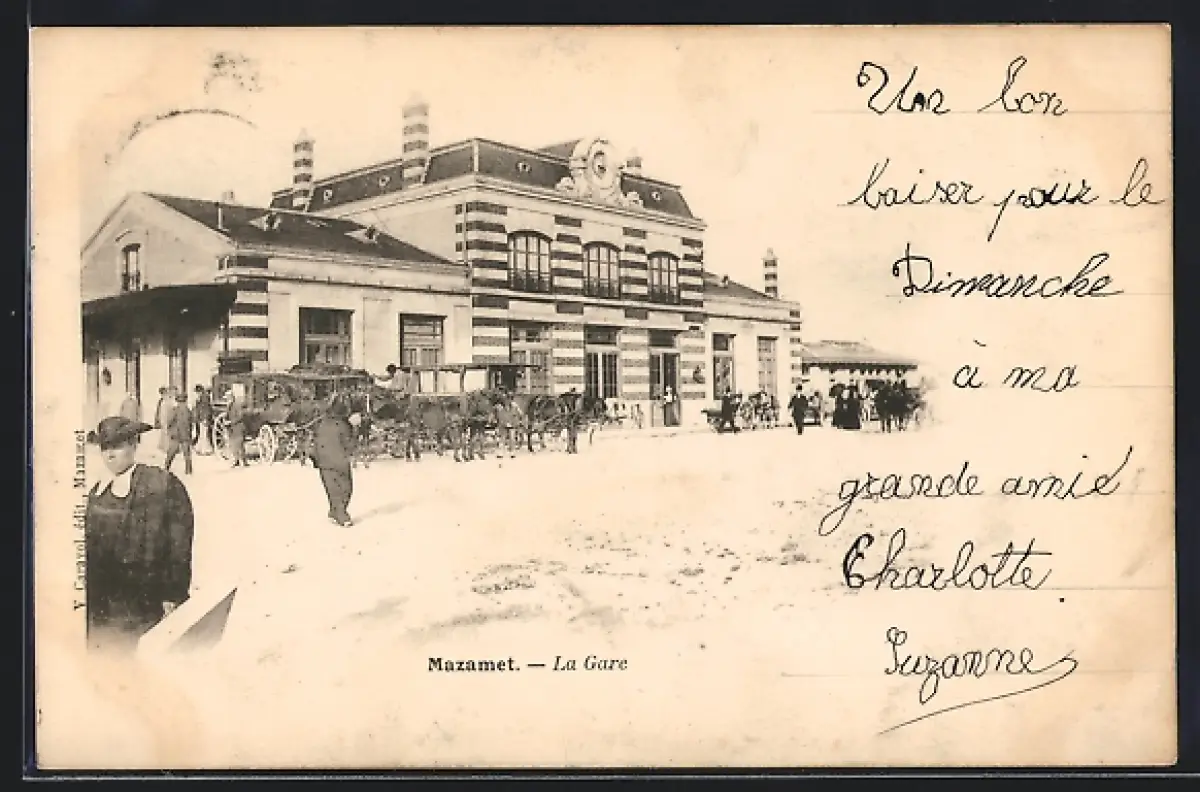 Un bon
baiser pour le
Dimanche
à ma
grande amie
Charlotte.
Suzanne
Mazamet. — La Gare
édit., Mazamet